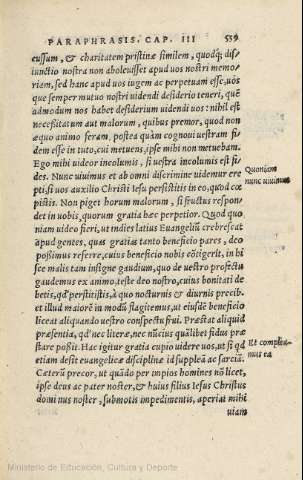 PARAPHRASIS. CAP. III 539
cussum, & charitatem pristinæ similem, quodq; dis/
iunctio nostra non aboleuisset apud uos nostri memo/
riam, sed hanc apud uos iugem ac perpetuam esse, uos
que semper mutuo nostri uidendi desiderio teneri, quē
admodum nos habet desiderium uidendi uos: nihil est
necessitatum aut malorum, quibus premor, quod non
æquo animo feram, postea quàm cognoui uestram fi
dem esse in tuto, cui metuens, ipse mihi non metuebam.
Ego mihi uideor incolumis, si uestra incolumis est fi/
des. Nunc uiuimus et ab omni discrimine uidemur ere
pti, si uos auxilio Christi Iesu persistitis in eo, quod cœ
pistis. Non piget horum malorum, si fructus respon/
det in uobis, quorum gratia hæc perpetior. Quod quo/
niam uideo fieri, ut indies latius Euangeliū crebrescat
apud gentes, quas gratias tanto beneficio pares, deo
possimus referre, cuius beneficio nobis cōtigerit, in hi
sce malis tam insigne gaudium, quo de uestro profectu
gaudemus ex animo, teste deo nostro, cuius bonitati de
betis, qd' perstitistis, à quo nocturnis & diurnis precib.
et illud maiorē in modū flagitemus, ut eiusdē beneficio
liceat aliquando uestro conspectu frui. Præstat aliquid
præsentia, qd' nec literæ, nec nūcius quālibet fidus præ
stare possit. Hac igitur gratia cupio uidere uos, ut si qd
etiam desit euangelicæ disciplinæ id suppleā ac sarciā.
Cæterū precor, ut quādo per impios homines nō licet,
ipse deus ac pater noster, & huius filius Iesus Christus
dominus noster, submotis impedimentis, aperiat mihi
uiam
Quoniam
nunc uiuimus
Et complea/
mus ea
Ministerio de Educación, Cultura y Deporte